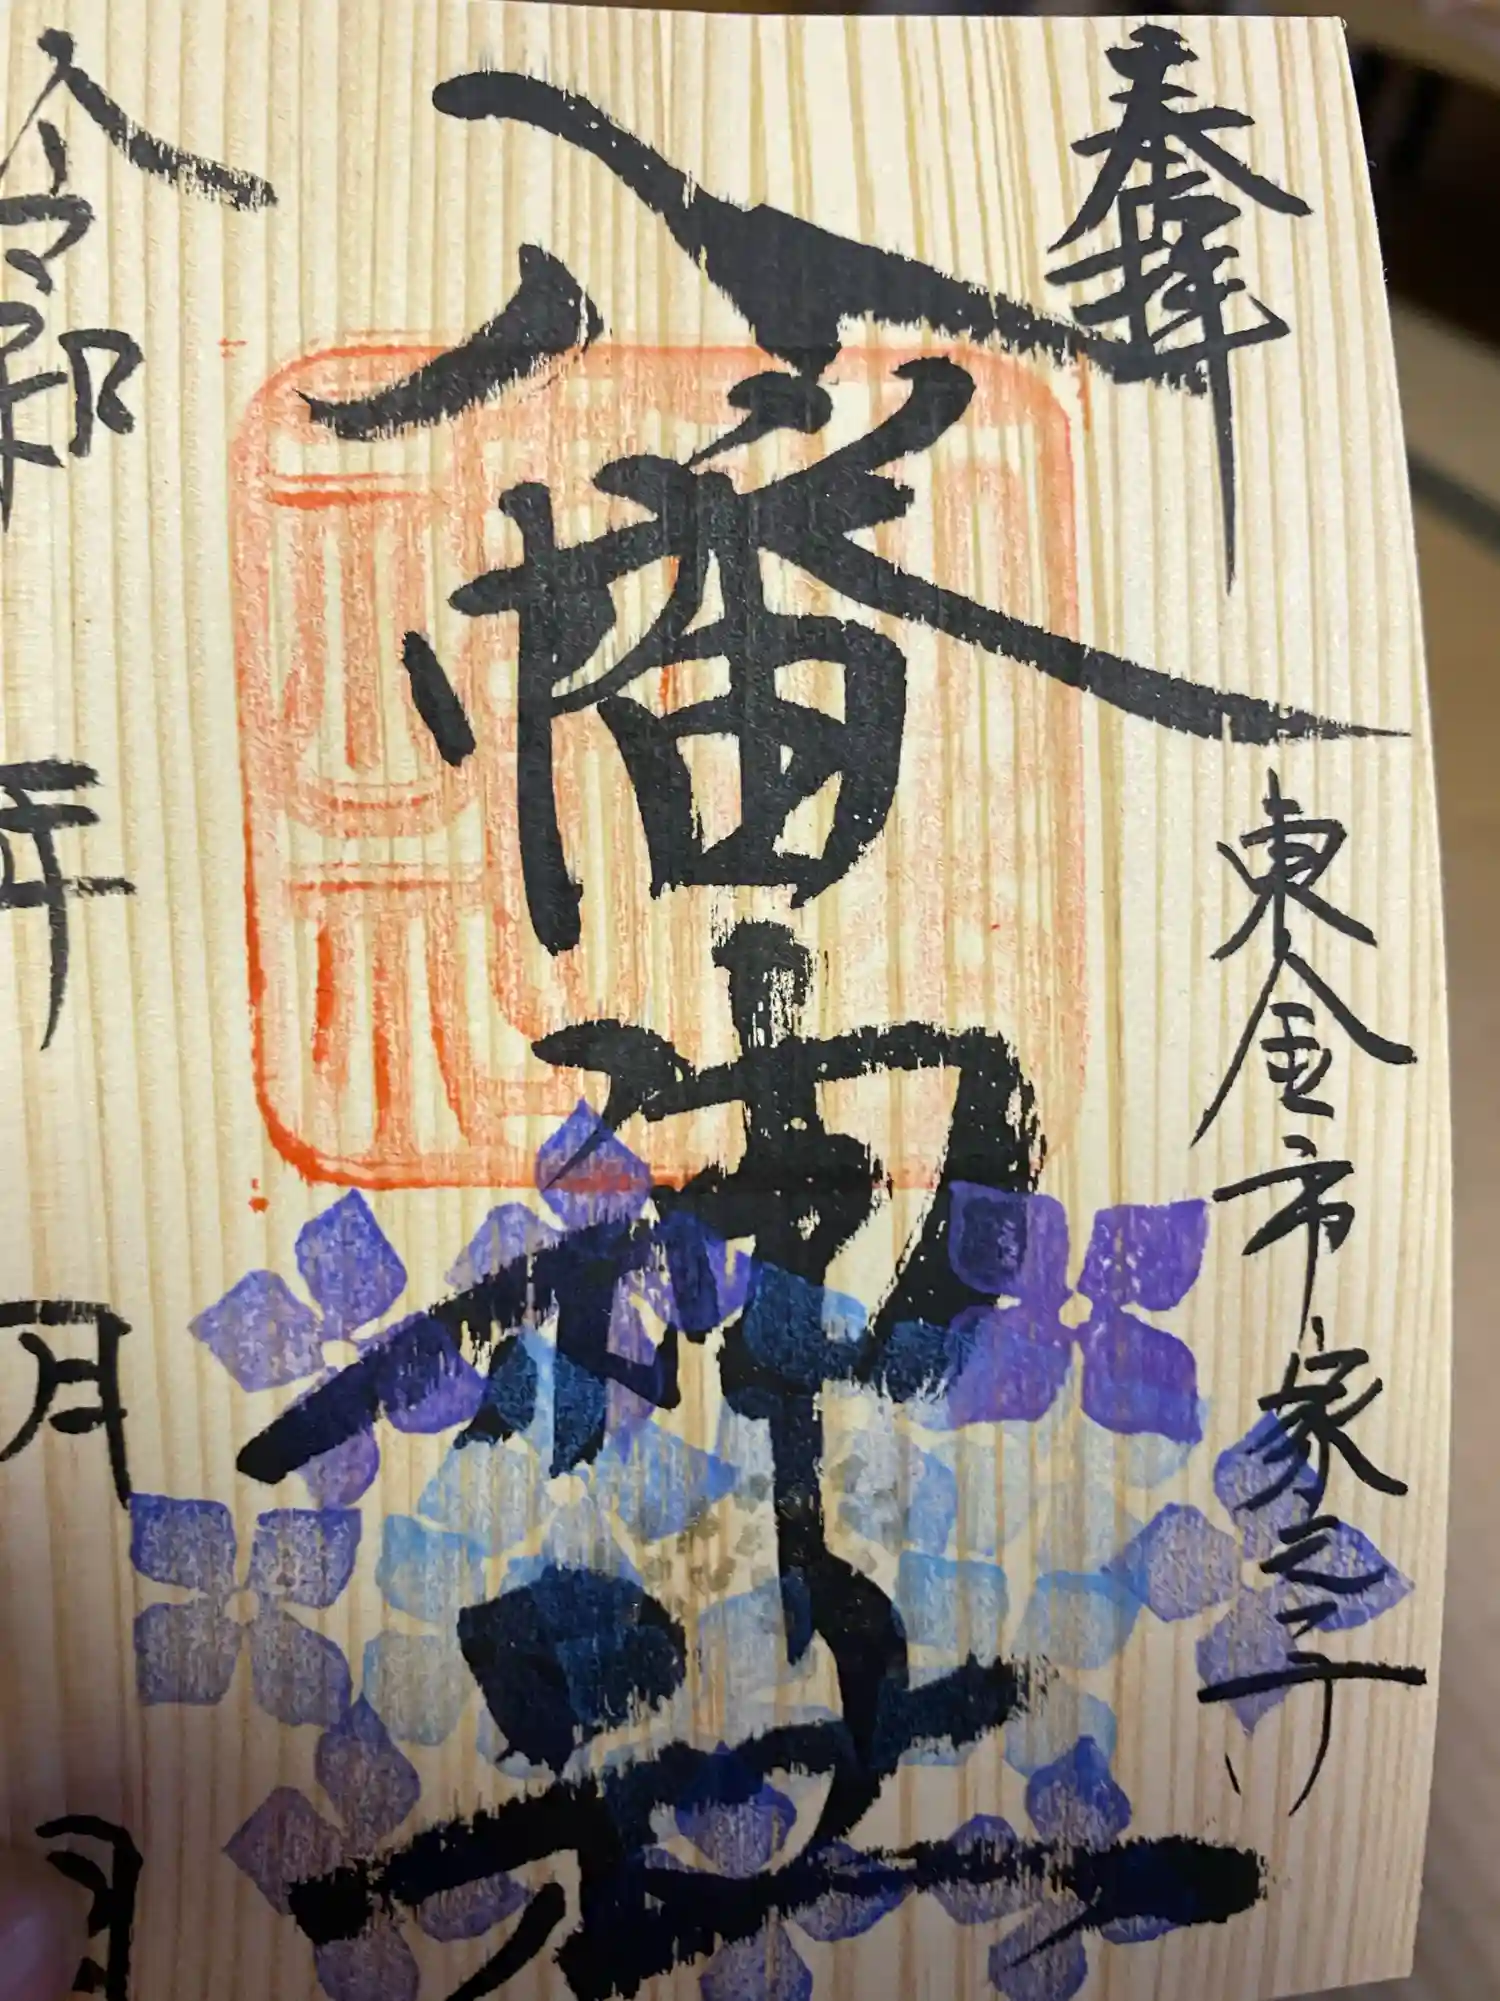 奉拝
東金市家之子
八幡神社
令和
年
月
日